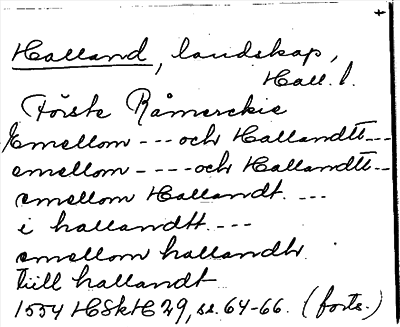 Halland, landskap,
Hall. l.
Förste Råmerckie
Emellom --- och Hallandtt---
emellom ---- och Hallandtt--
emellom Hallandt. ---
i hallandtt ---
emellom hallandtz
till hallandt
1554 HSkH 29, ss. 64-66. (forts.)